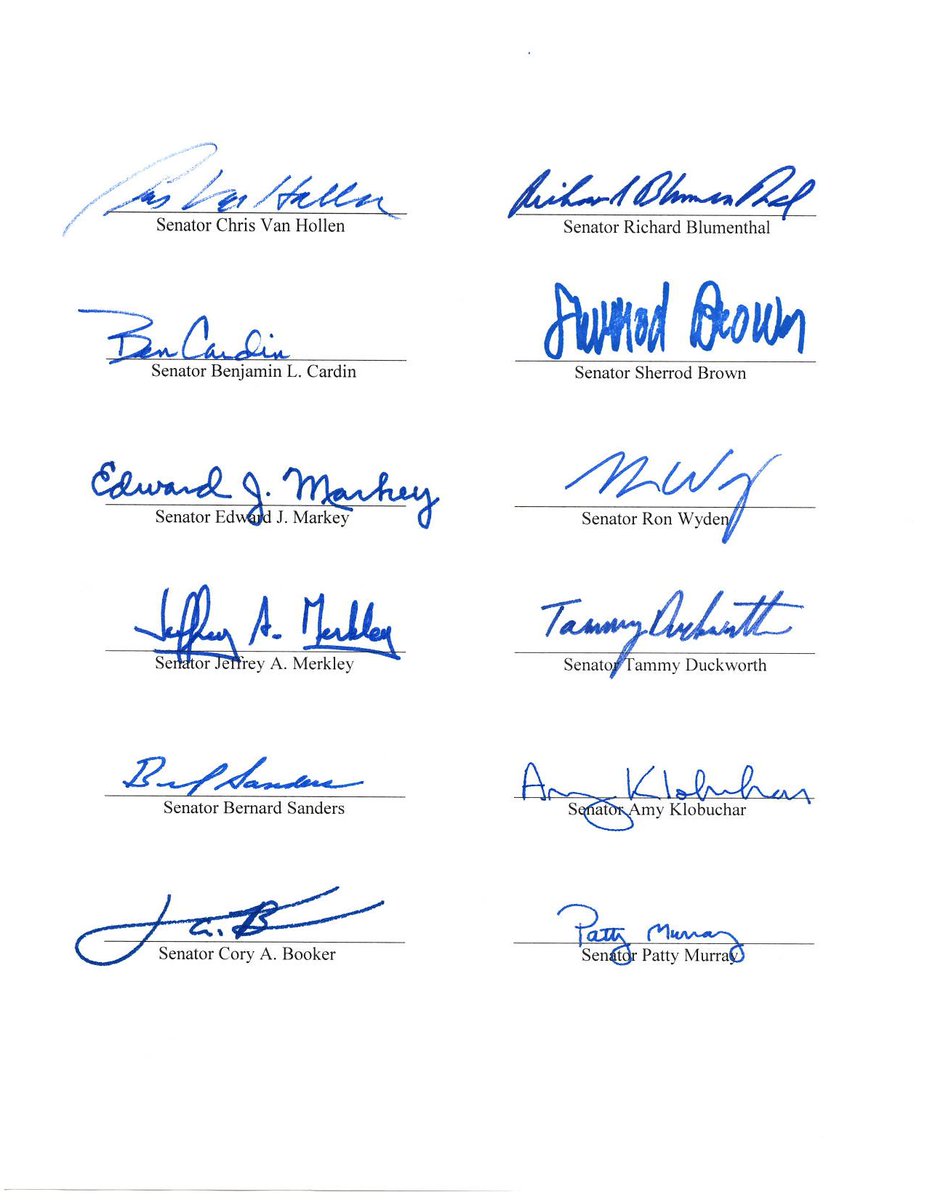 Chris Van Hollen
Senator Chris Van Hollen
Richard Blumenthal
Senator Richard Blumenthal
Ben Cardin
Senator Benjamin L. Cardin
Sherrod Brown
Senator Sherrod Brown
Edward J. Markey
Senator Edward J. Markey
Ron Wyden
Senator Ron Wyden
Jeffrey A. Merkley
Senator Jeffrey A. Merkley
Tammy Duckworth
Senator Tammy Duckworth
Sanders
Senator Bernard Sanders
Amy Klobuchar
Senator Amy Klobuchar
Senator Cory A. Booker
Patty Murray
Senator Patty Murray